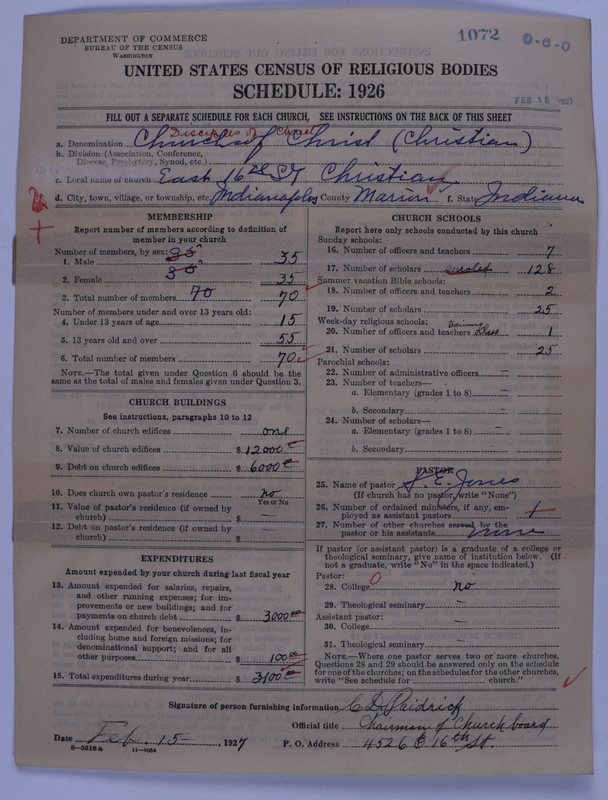 DEPARTMENT OF COMMERCE
BUREAU OF THE CENSUS
WASHINGTON
1072 0-6-0
UNITED STATES CENSUS OF RELIGIOUS BODIES
SCHEDULE: 1926
FEB 18 1927
FILL OUT A SEPARATE SCHEDULE FOR EACH CHURCH. SEE INSTRUCTIONS ON THE BACK OF THIS SHEET
Disciples of Christ
a. Denomination Church of Christ (Christian)
b. Division (Association, Conference,
Diocese, Presbytery, Synod, etc.)
c. Local name of church East 16th St Christian
d. City, town, village, or township, etc. Indianapolis County Marion f. State Indiana
MEMBERSHIP
Report number of members according to definition of
member in your church
Number of members, by sex:
1. Male 35
2. Female 35
3. Total number of members 70 70
Number of members under and over 13 years old:
4. Under 13 years of age 15
5. 13 years old and over 55
6. Total number of members 70
NOTE.—The total given under Question 6 should be the
same as the total of males and females given under Question 3.
CHURCH BUILDINGS
See instructions, paragraphs 10 to 12
7. Number of church edifices one
8. Value of church edifices $ 12000 00
9. Debt on church edifices $ 6000 00
10. Does church own pastor's residence no
Yes or No
11. Value of pastor's residence (if owned by
church) $ —
12. Debt on pastor's residence (if owned by
church) $ —
EXPENDITURES
Amount expended by your church during last fiscal year
13. Amount expended for salaries, repairs,
and other running expenses; for im-
provements or new buildings; and for
payments on church debt $ 3000 00
14. Amount expended for benevolences, in-
cluding home and foreign missions; for
denominational support; and for all
other purposes $ 100 00
15. Total expenditures during year $ 3100 00
CHURCH SCHOOLS
Report here only schools conducted by this church
Sunday schools:
16. Number of officers and teachers 7
17. Number of scholars 128
Summer vacation Bible schools:
18. Number of officers and teachers 2
19. Number of scholars 25
Week-day religious schools: training
20. Number of officers and teachers class 1
21. Number of scholars 25
Parochial schools:
22. Number of administrative officers —
23. Number of teachers—
a. Elementary (grades 1 to 8) —
b. Secondary —
24. Number of scholars—
a. Elementary (grades 1 to 8) —
b. Secondary —
PASTOR
25. Name of pastor S. E. Jones
(If church has no pastor, write "None")
26. Number of ordained ministers, if any, em-
ployed as assistant pastors
27. Number of other churches served by the
pastor or his assistants none
If pastor (or assistant pastor) is a graduate of a college or
theological seminary, give name of institution below. (If
not a graduate, write "No" in the space indicated.)
Pastor:
28. College no
29. Theological seminary —
Assistant pastor:
30. College —
31. Theological seminary —
NOTE.—Where one pastor serves two or more churches,
Questions 28 and 29 should be answered only on the schedule
for one of the churches; on the schedules for the other churches,
write "See schedule for church."
Signature of person furnishing information C D Paidrick
Official title Chairman of Church board
Date Feb. 15, 1927 P. O. Address 4526 E 16th St.
8-5518a 11-9054